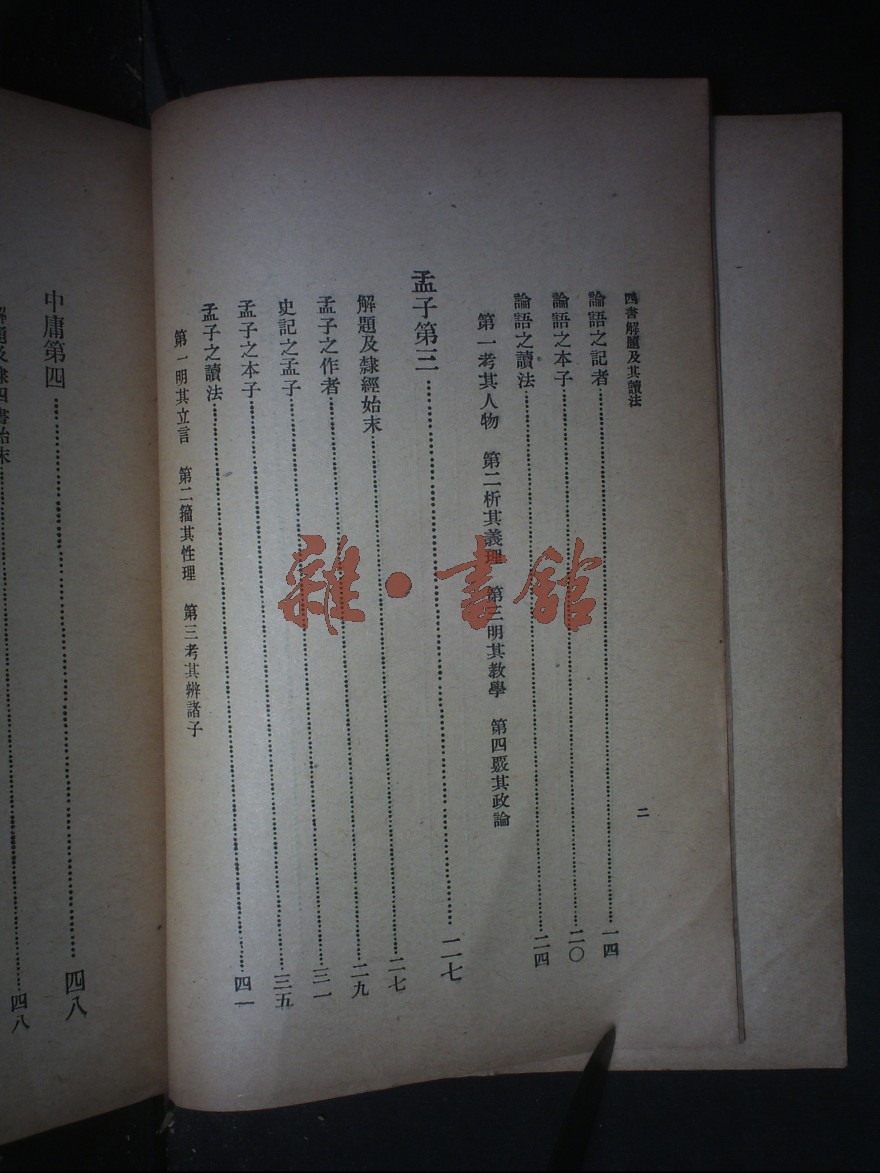 四書解題及其讀法 二
論語之記者……一四
論語之本子……二〇
論語之讀法……二四
第一考其人物 第二析其義理 第三明其教學 第四覈其政論
孟子第三……二七
解題及隸經始末……二七
孟子之作者……二九
史記之孟子……三一
孟子之本子……三五
孟子之讀法……四一
第一明其立言 第二籀其性理 第三考其辨諸子
中庸第四……四八
解題及隸四書始末……四八
雜·書館